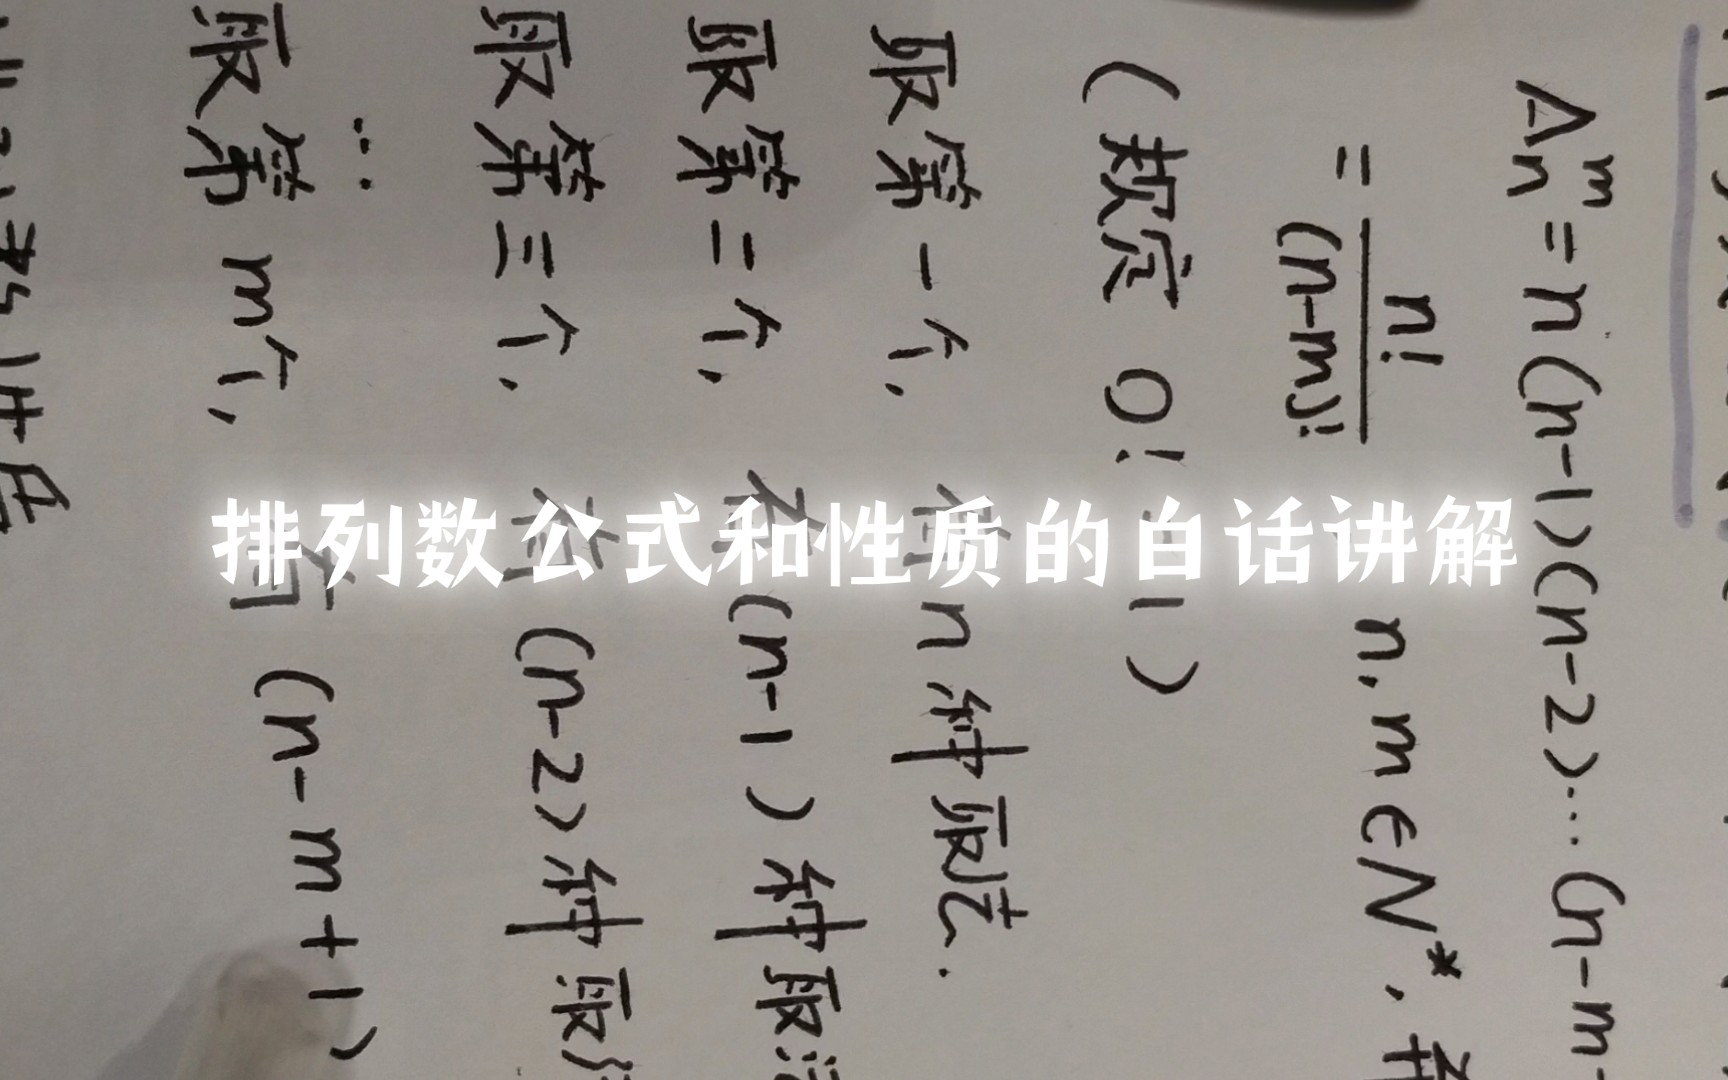 排列数公式和性质的白话讲解
Aₙᵐ=n(n-1)(n-2)…(n-m
=n!/(n-m)! n.m∈N*,
(规定 0! 1)
取第一个, 有n种取法.
取第二个, 有(n-1)种取法
取第三个, 有(n-2)种取
⋯
取第m个, 有(n-m+1)